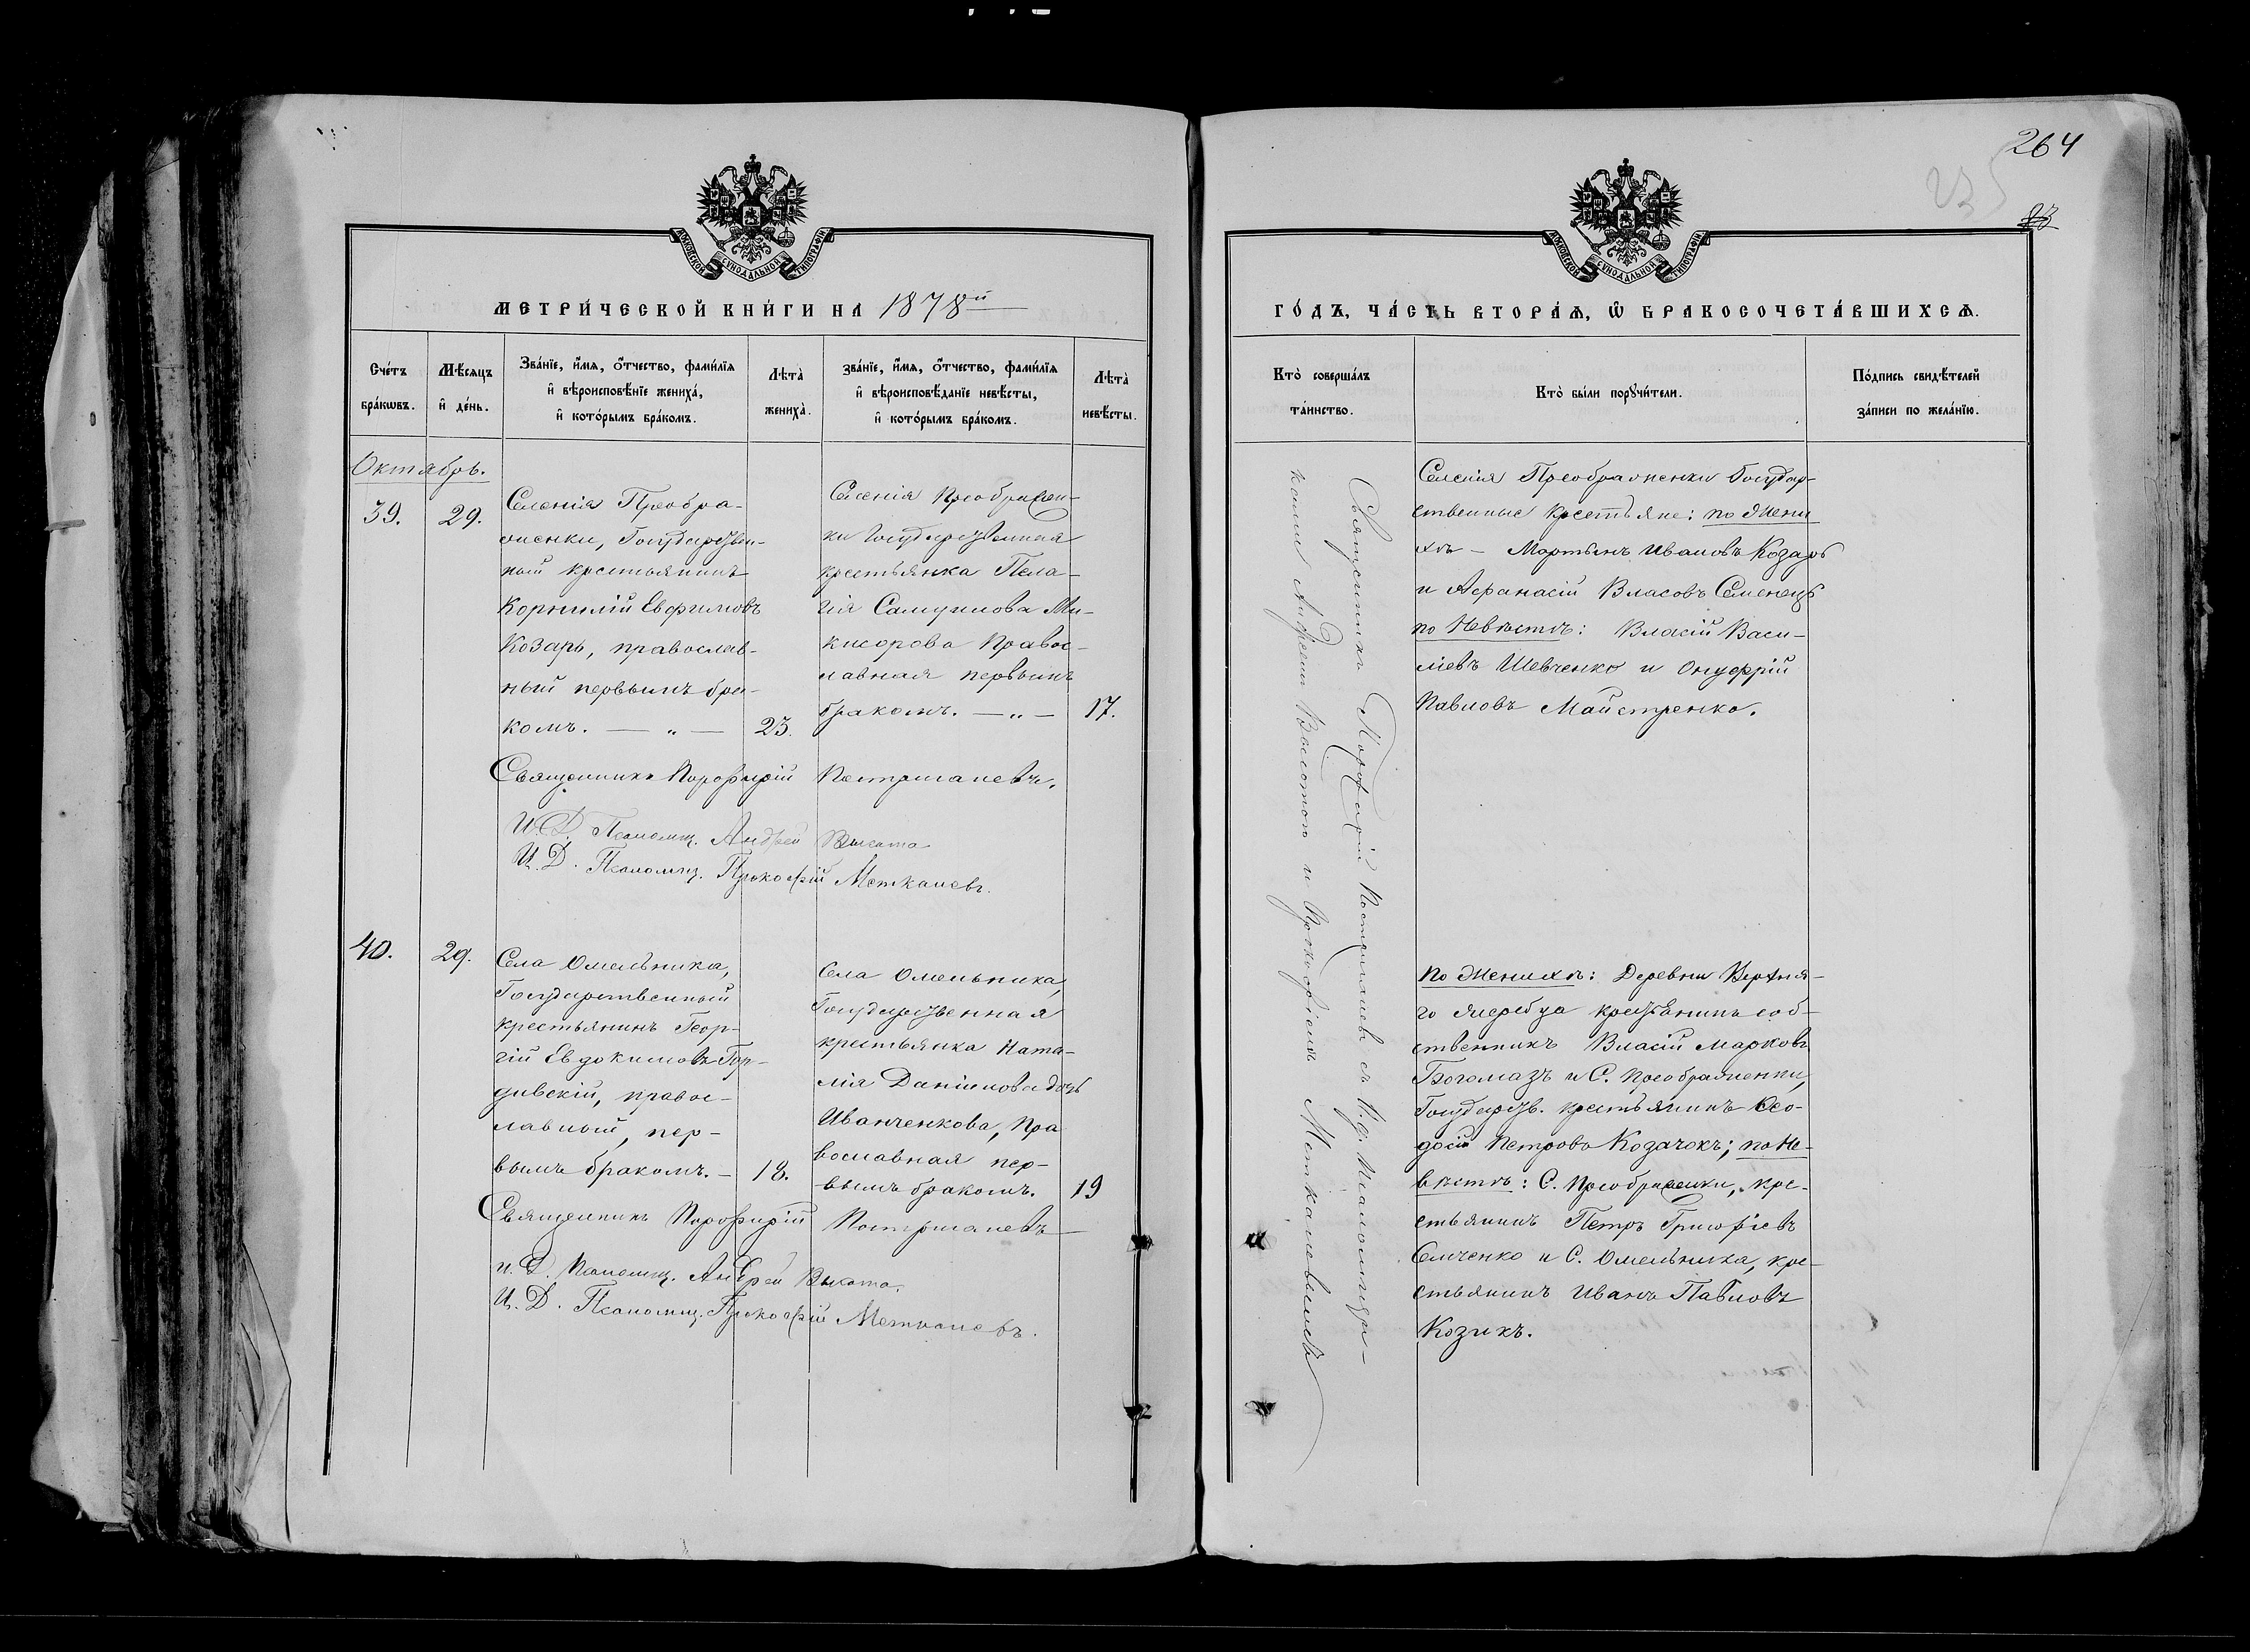 264
83
МОСКОВСКОЙ СУНОДАЛЬНОЙ ТИПОГРАФІИ
МЕТРИ́ЧЕСКОЙ КНИ́ГИ НА 1878й
Сче́тъ бра́кѡвъ.
Мѣ́сяцъ и҆ де́нь.
Зва́нїе, и҆́мѧ, ѻ҆́тчество, фами́лїѧ
и҆ вѣроисповѣ́нїе жениха́,
и҆ кото́рымъ бра́комъ.
Лѣта̀
жениха̀.
зва́нїе, и҆́мѧ, ѻ҆́тчество, фами́лїѧ
и҆ вѣроисповѣ́данїе невѣ́сты,
и҆ кото́рымъ бра́комъ.
Лѣта̀
невѣ́сты.
Октябрь.
39.
29.
Селенія Преобра-
женки, Государствен-
ный крестьянинъ
Корнилій Евфимовъ
Козарь, православ-
ный первымъ бра-
комъ. — „ —
23.
Селенія Преображен-
ки Государственная
крестьянка Пела-
гія Самуилова Ми-
кифорова Правос-
лавная первымъ
бракомъ. — „ —
17.
Священникъ Порфирій Постригачевъ.
И. Д. Псаломщ. Андрей Высота
И. Д. Псаломщ. Прокофій Меткалевъ.
40.
29.
Села Омельника,
Государственный
крестьянинъ Геор-
гій Евдокимовъ Гор-
дивскій, правос-
лавный, пер-
вымъ бракомъ. —
18.
Села Омельника,
Государственная
крестьянка Ната-
лія Даніилова дочь
Иванченкова, Пра
вославная пер-
вымъ бракомъ.
19
Священникъ Порфирій
И. Д. Псаломщ. Андрей Высота.
И. Д. Псаломщ. Прокофій Меткалевъ.
МОСКОВСКОЙ СУНОДАЛЬНОЙ ТИПОГРАФІИ
ГО́ДЪ, ЧА́СТЬ ВТОРА́Ѧ, Ѡ҆ БРАКОСОЧЕТА́ВШИХСѦ.
Кто̀ соверша́лъ
та́инство.
Кто̀ бы́ли порꙋчи́тели.
По́дпись свидѣ́телей
за́писи по жела́нїю.
Священникъ Порфирій с и. д. Псаломщи-
ками Андреемъ Высотою и Прокофіемъ Меткалевымъ
Селенія Преображенки Государ-
ственные крестьяне: по Жени
хѣ — Мартынъ Ивановъ Козарь
и Афанасій Власовъ Семенецъ
по Невѣстѣ: Власій Васи-
ліевъ Шевченко и Онуфрій
Павловъ Майстренко.
По Женихѣ: Деревни Верхня-
го Жеребца крестьянинъ соб-
ственникъ Власій Марковъ
Богомазъ и С. Преображенки,
Государств. крестьянинъ Ѳео-
досій Петровъ Козачокъ; по Не-
вѣстѣ: С. Преображенки, кре-
стьянинъ Петръ Григорьевъ
Семченко и С. Омельника, кре-
стьянинъ Иванъ Павловъ
Козикъ.